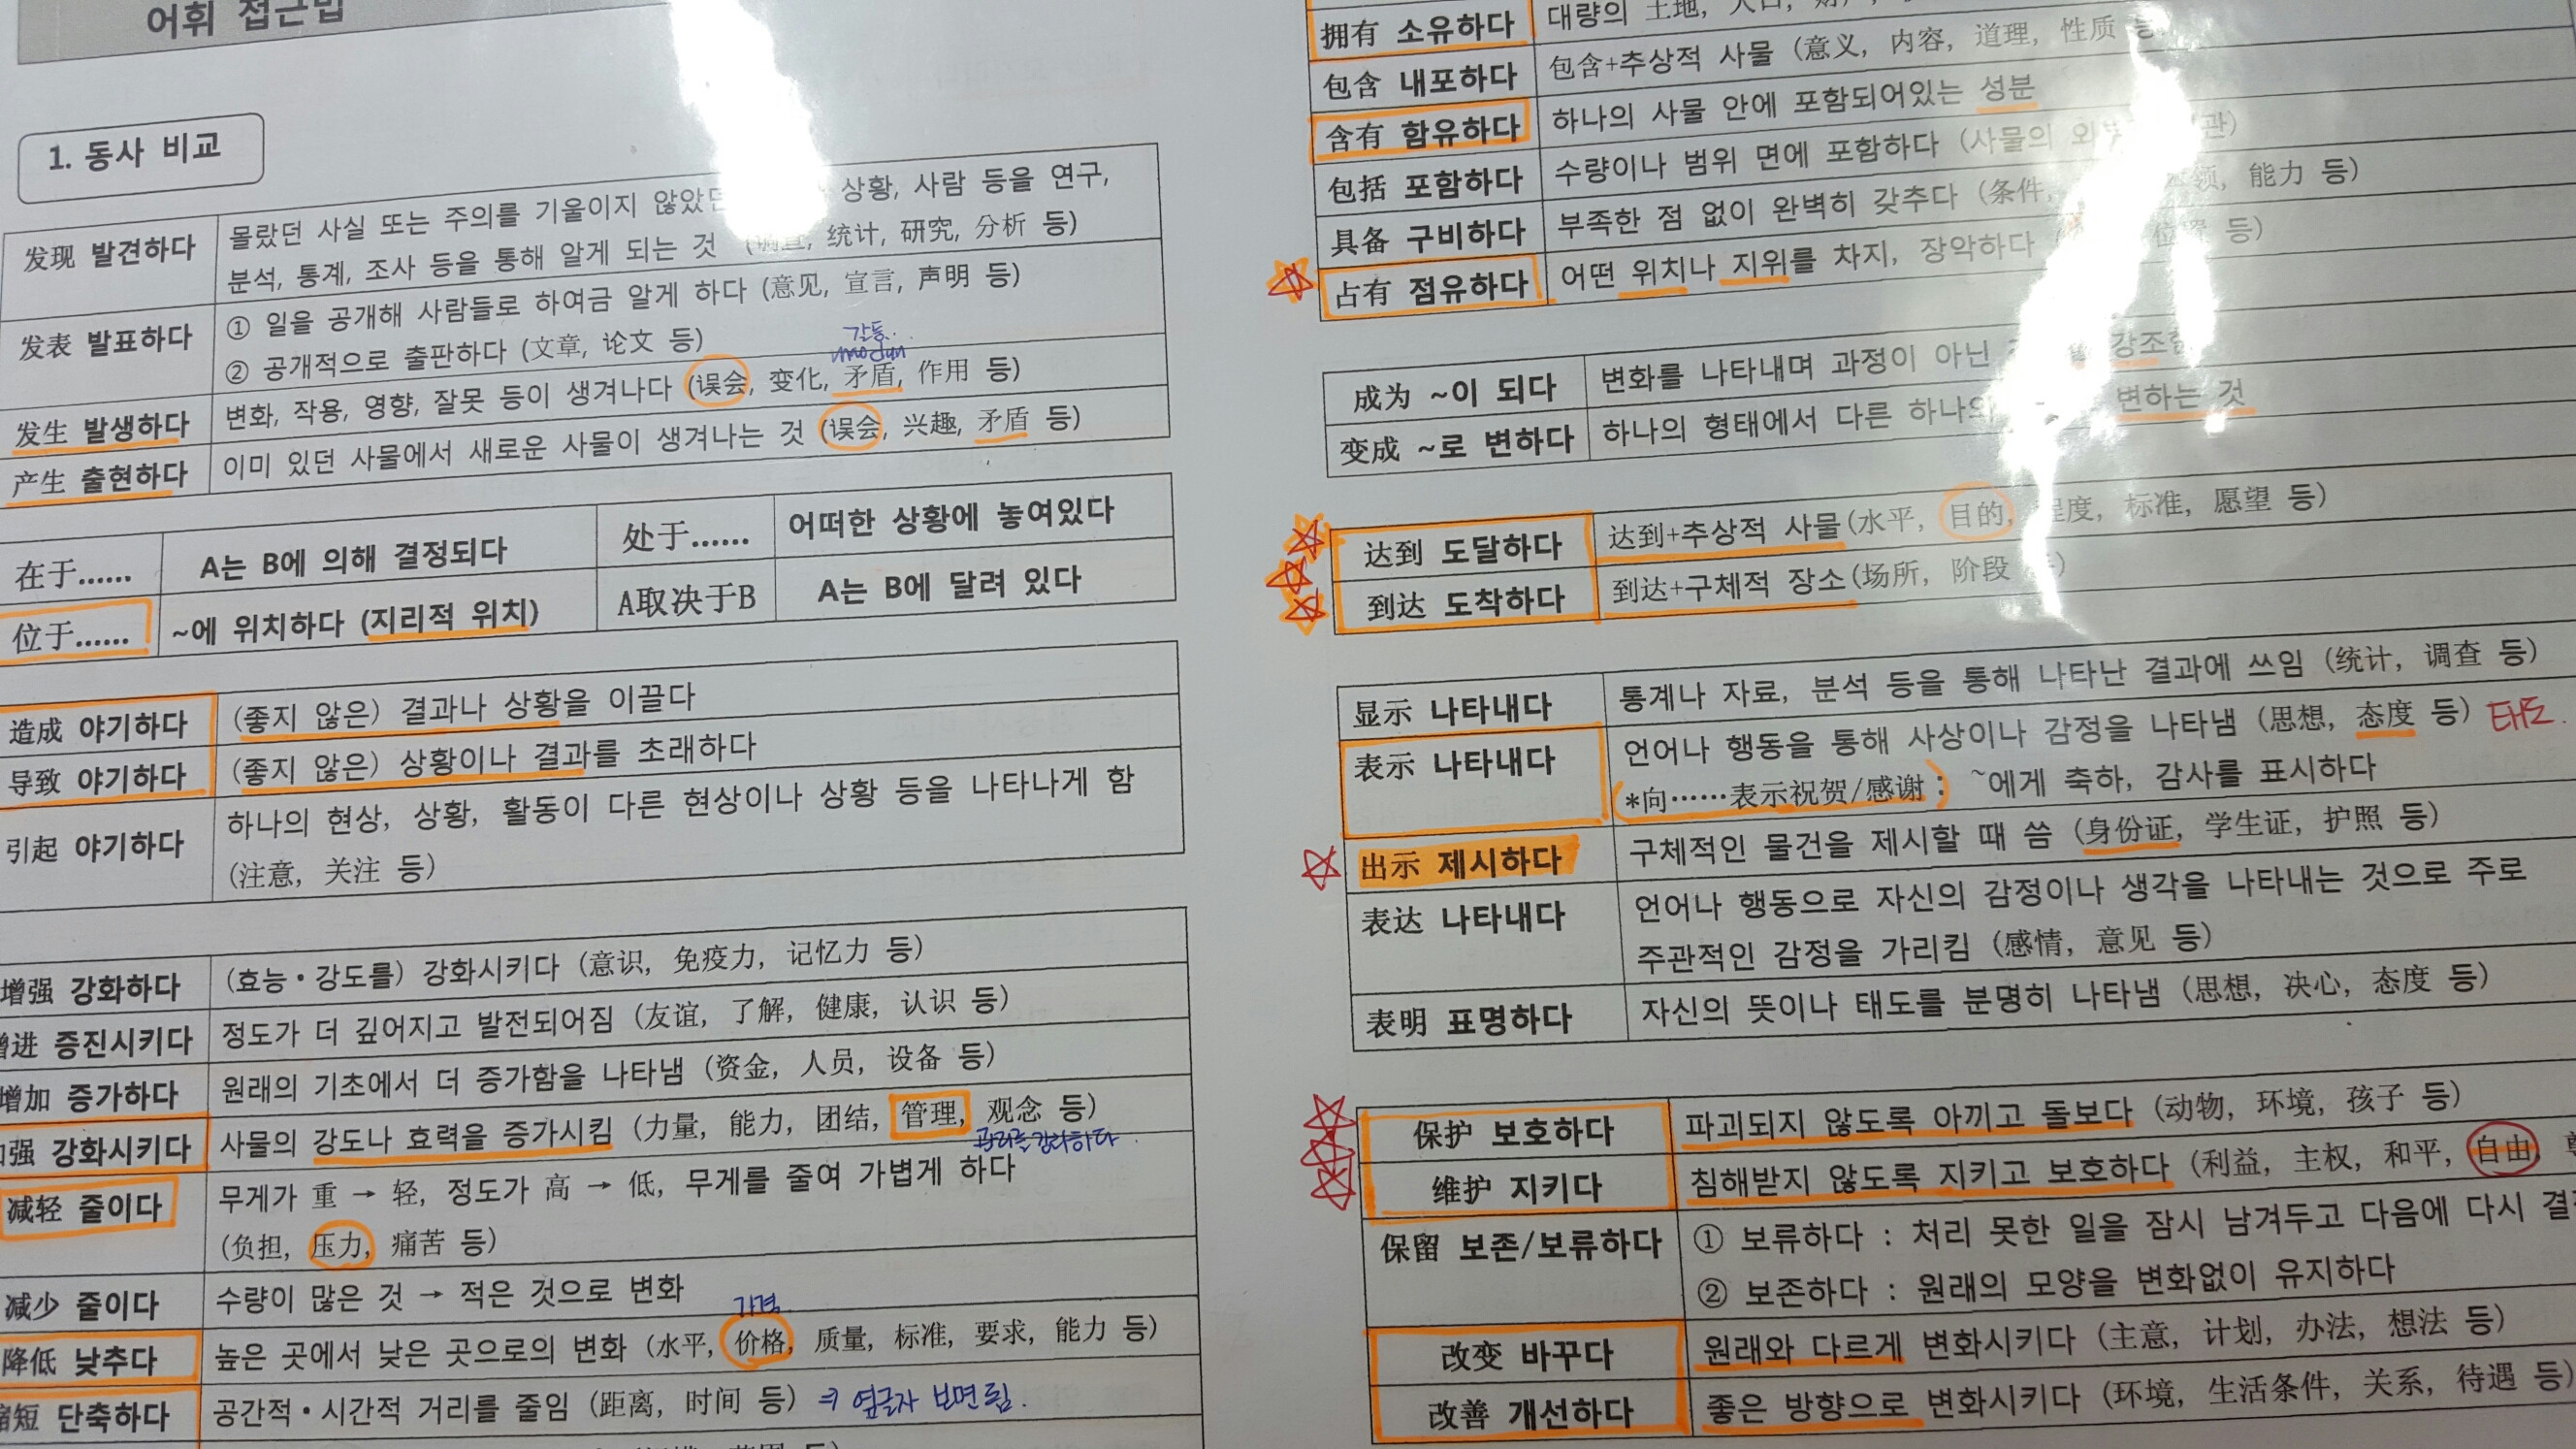 어휘 접근법
1. 동사 비교
发现 발견하다
몰랐던 사실 또는 주의를 기울이지 않았던 상황, 사람 등을 연구,
분석, 통계, 조사 등을 통해 알게 되는 것 (调查, 统计, 研究, 分析 등)
发表 발표하다
① 일을 공개해 사람들로 하여금 알게 하다 (意见, 宣言, 声明 등)
② 공개적으로 출판하다 (文章, 论文 등)
갈등.
发生 발생하다
변화, 작용, 영향, 잘못 등이 생겨나다 (误会, 变化, 矛盾, 作用 등)
产生 출현하다
이미 있던 사물에서 새로운 사물이 생겨나는 것 (误会, 兴趣, 矛盾 등)
在于…… A는 B에 의해 결정되다 处于…… 어떠한 상황에 놓여있다
位于…… ~에 위치하다 (지리적 위치) A取决于B A는 B에 달려 있다
造成 야기하다 (좋지 않은) 결과나 상황을 이끌다
导致 야기하다 (좋지 않은) 상황이나 결과를 초래하다
引起 야기하다
하나의 현상, 상황, 활동이 다른 현상이나 상황 등을 나타나게 함
(注意, 关注 등)
增强 강화하다 (효능·강도를) 강화시키다 (意识, 免疫力, 记忆力 등)
增进 증진시키다 정도가 더 깊어지고 발전되어짐 (友谊, 了解, 健康, 认识 등)
增加 증가하다 원래의 기초에서 더 증가함을 나타냄 (资金, 人员, 设备 등)
强 강화시키다 사물의 강도나 효력을 증가시킴 (力量, 能力, 团结, 管理, 观念 등)
관리를 강화하다
减轻 줄이다
무게가 重 → 轻, 정도가 高 → 低, 무게를 줄여 가볍게 하다
(负担, 压力, 痛苦 등)
减少 줄이다 수량이 많은 것 → 적은 것으로 변화
가격
降低 낮추다 높은 곳에서 낮은 곳으로의 변화 (水平, 价格, 质量, 标准, 要求, 能力 등)
缩短 단축하다 공간적·시간적 거리를 줄임 (距离, 时间 등) 옆글자 보면 됨.
拥有 소유하다 대량의 土地, 人口,
包含 내포하다 包含+추상적 사물 (意义, 内容, 道理, 性质 등
含有 함유하다 하나의 사물 안에 포함되어있는 성분
包括 포함하다 수량이나 범위 면에 포함하다 (사물의 외
具备 구비하다 부족한 점 없이 완벽히 갖추다 (条件, 能力 등)
占有 점유하다 어떤 위치나 지위를 차지, 장악하다 位置 등)
成为 ~이 되다 변화를 나타내며 과정이 아닌 강조함
变成 ~로 변하다 하나의 형태에서 다른 하나의 변하는 것
达到 도달하다 达到+추상적 사물(水平, 目的, 程度, 标准, 愿望 등)
到达 도착하다 到达+구체적 장소(场所, 阶段 등)
显示 나타내다 통계나 자료, 분석 등을 통해 나타난 결과에 쓰임 (统计, 调查 등)
表示 나타내다
언어나 행동을 통해 사상이나 감정을 나타냄 (思想, 态度 등) 태도.
*向……表示祝贺/感谢 : ~에게 축하, 감사를 표시하다
出示 제시하다 구체적인 물건을 제시할 때 씀 (身份证, 学生证, 护照 등)
表达 나타내다
언어나 행동으로 자신의 감정이나 생각을 나타내는 것으로 주로
주관적인 감정을 가리킴 (感情, 意见 등)
表明 표명하다 자신의 뜻이나 태도를 분명히 나타냄 (思想, 决心, 态度 등)
保护 보호하다 파괴되지 않도록 아끼고 돌보다 (动物, 环境, 孩子 등)
维护 지키다 침해받지 않도록 지키고 보호하다 (利益, 主权, 和平, 自由,
保留 보존/보류하다
① 보류하다 : 처리 못한 일을 잠시 남겨두고 다음에 다시
② 보존하다 : 원래의 모양을 변화없이 유지하다
改变 바꾸다 원래와 다르게 변화시키다 (主意, 计划, 办法, 想法 등)
改善 개선하다 좋은 방향으로 변화시키다 (环境, 生活条件, 关系, 待遇 등)